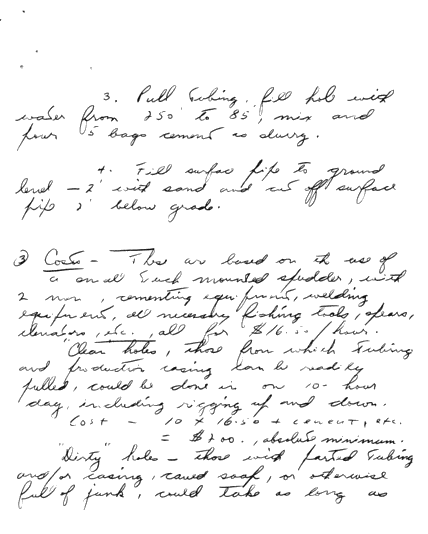 3. Pull tubing, fill hole with
water from 250' to 85', mix and
pour 5 bags cement as slurry.
4. Fill surface pipe to ground
level - 2' with sand and cut off surface
pipe 2' below grade.
③ Costs - These are based on the use of
a small truck mounted spudder, with
2 men, cementing equipment, welding
equipment, all necessary fishing tools, spears,
elevators, etc., all for $16.50/hour.
"Clean" holes, those from which tubing
and production casing can be readily
pulled, could be done in on 10-hour
day, including rigging up and down.
Cost - 10 x 16.50 + cement, etc.
= $200., absolute minimum.
"Dirty" holes - those with parted tubing
and/or casing, caved soap, or otherwise
full of junk, could take as long as